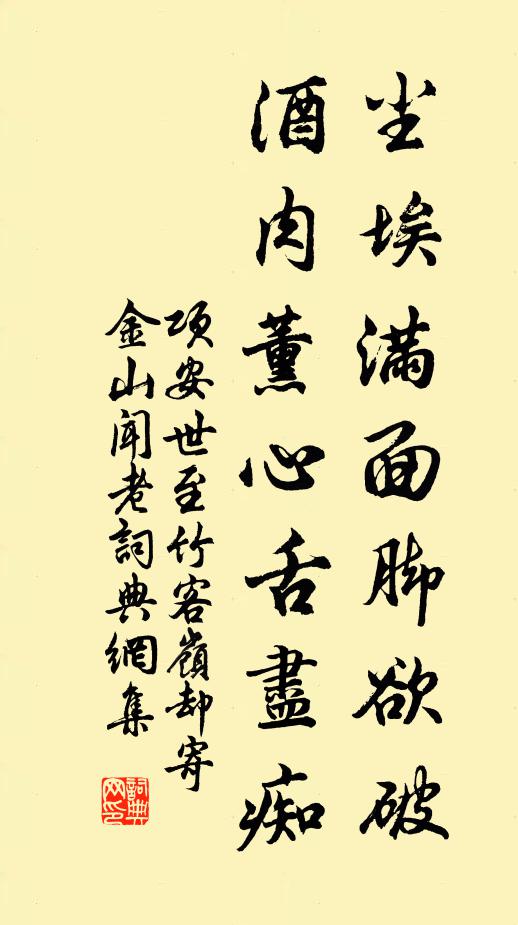 尘埃滿面脚欲破
酒肉薰心舌盡痴
项安世至竹客嶺却寄
金山闻老詞典網集
詞典网印